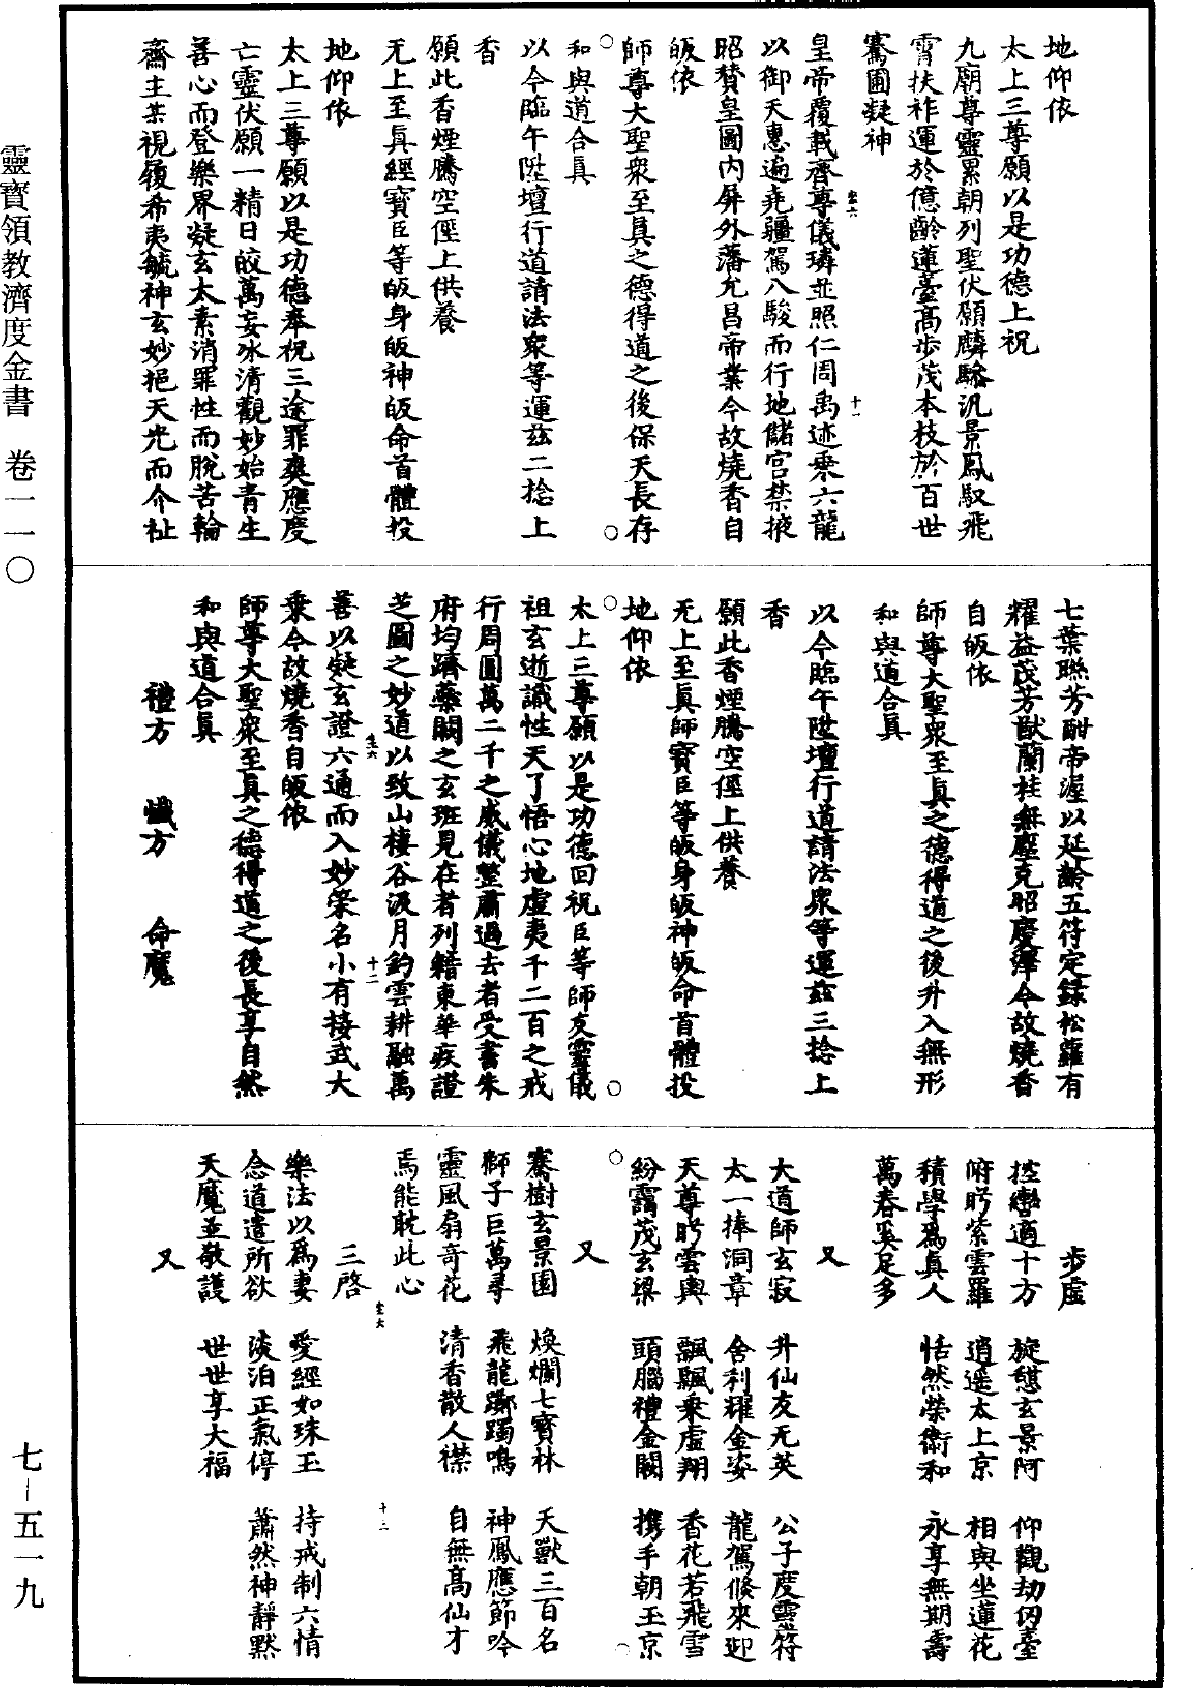 地仰依
太上三尊願以是功德上祝
九廟尊靈累朝列聖伏願麟輅汎景鳳馭飛
霄扶祚運於億齡蓮臺高步茂本枝於百世
騫圃凝神
皇帝覆載齊尊儀璘並照仁周禹迹乘六龍
以御天惠遍堯疆駕八駿而行地儲宮禁掖
昭贊皇圖內屏外藩允昌帝業今故燒香自
皈依
師尊大聖眾至真之德得道之後保天長存
和與道合真
以今臨午陞壇行道請法眾等運茲二捻上
香
願此香煙騰空徑上供養
无上至真經寶臣等皈身皈神皈命首體投
地仰依
太上三尊願以是功德奉祝三途罪爽應度
亡靈伏願一精日皎萬妄冰清觀妙始青生
善心而登樂界凝玄太素消罪性而脫苦輪
齋主某視履希夷毓神玄妙挹天光而介祉
七葉聯芳酣帝渥以延齡五符定錄松蘿有
耀益茂芳猷蘭桂無壓克昭慶澤今故燒香
自皈依
師尊大聖眾至真之德得道之後升入無形
和與道合真
以今臨午陞壇行道請法眾等運茲三捻上
香
願此香煙騰空徑上供養
无上至真師寶臣等皈身皈神皈命首體投
地仰依
太上三尊願以是功德回祝臣等師友靈儀
祖玄逝識性天了悟心地虛夷千二百之戒
行周圓萬二千之威儀整肅過去者受書朱
府均躋蘂闕之玄班見在者列籍東華疾證
芝圖之妙道以致山棲谷汲月釣雲耕融萬
善以凝玄證六通而入妙策名小有接武大
乘今故燒香自皈依
師尊大聖眾至真之德得道之後長享自然
和與道合真
禮方 懺方 命魔
步虛
控轡適十方 旋憩玄景阿 仰觀劫仞臺
俯眄紫雲羅 逍遙太上京 相與坐蓮花
積學為真人 恬然榮衛和 永享無期壽
萬春奚足多
又
大道師玄寂 升仙友无英 公子度靈符
太一捧洞章 舍利耀金姿 龍駕倏來迎
天尊眄雲輿 飄飄乘虛翔 香花若飛雪
紛靄茂玄梁 頭腦禮金闕 攜手朝玉京
又
騫樹玄景園 煥爛七寶林 天獸三百名
獅子巨萬尋 飛龍躑躅鳴 神鳳應節吟
靈風扇奇花 清香散人襟 自無高仙才
焉能耽此心
三啓
樂法以為妻 愛經如珠玉 持戒制六情
念道遣所欲 淡泊正氣停 蕭然神靜默
天魔並敬護 世世享大福
又
靈寶領教濟度金書 卷一一〇
七–五一九